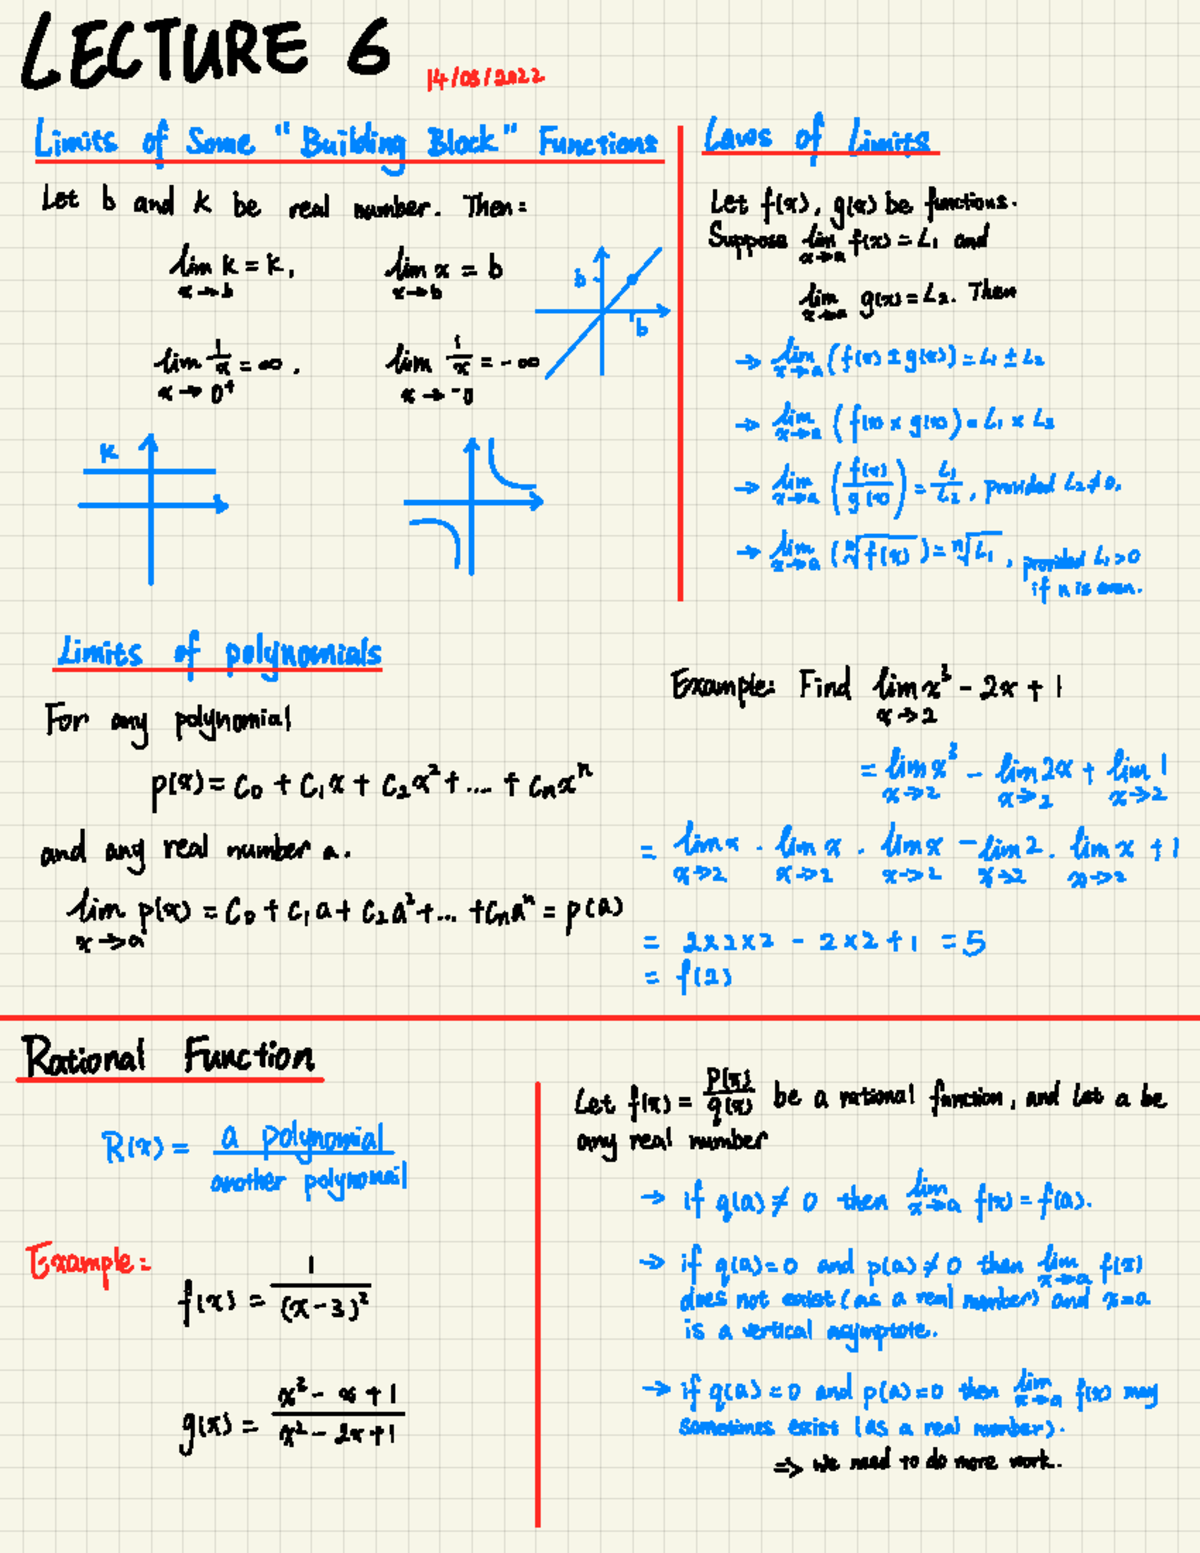 LECTURE 6
14/03/2022
Limits of Some "Building Block" Functions
Let b and k be real number. Then:
lim k = k,
x→b
lim x = b
x→b
b
b
lim 1/x = ∞.
x→0⁺
lim 1/x = -∞
x→⁻0
k
Laws of Limits
Let f(x), g(x) be functions.
Suppose lim f(x) = L₁ and
x→a
lim g(x) = L₂. Then
x→a
→ lim (f(x) ± g(x)) = L₁ ± L₂
x→a
→ lim (f(x) × g(x)) = L₁ × L₂
x→a
→ lim (f(x)/g(x)) = L₁/L₂, provided L₂≠0.
x→a
→ lim (ⁿ√f(x)) = ⁿ√L₁, provided L₁>0
x→a
if n is even.
Limits of polynomials
For any polynomial
p(x) = C₀ + C₁x + C₂x² + .... + Cₙxⁿ
and any real number a.
lim p(x) = C₀ + C₁a + C₂a² + ... + Cₙaⁿ = p(a)
x→a
Example: Find lim x³ - 2x + 1
x→2
= lim x³ - lim 2x + lim 1
x→2 x→2 x→2
= lim x · lim x · lim x - lim 2 · lim x + 1
x→2 x→2 x→2 x→2 x→2
= 2×2×2 - 2×2+1 = 5
= f(2)
Rational Function
R(x) = a polynomial
another polynomail
Example:
f(x) = 1/(x-3)²
g(x) = x² - x + 1
x² - 2x + 1
Let f(x) = p(x)/q(x) be a rational function, and let a be
any real number
→ if q(a) ≠ 0 then lim f(x) = f(a).
x→a
→ if q(a) = 0 and p(a) ≠ 0 then lim f(x)
x→a
does not exist (as a real number) and x=a
is a vertical asymptote.
→ if q(a) = 0 and p(a) = 0 then lim f(x) may
x→a
sometimes exist (as a real number).
⇒ we need to do more work.